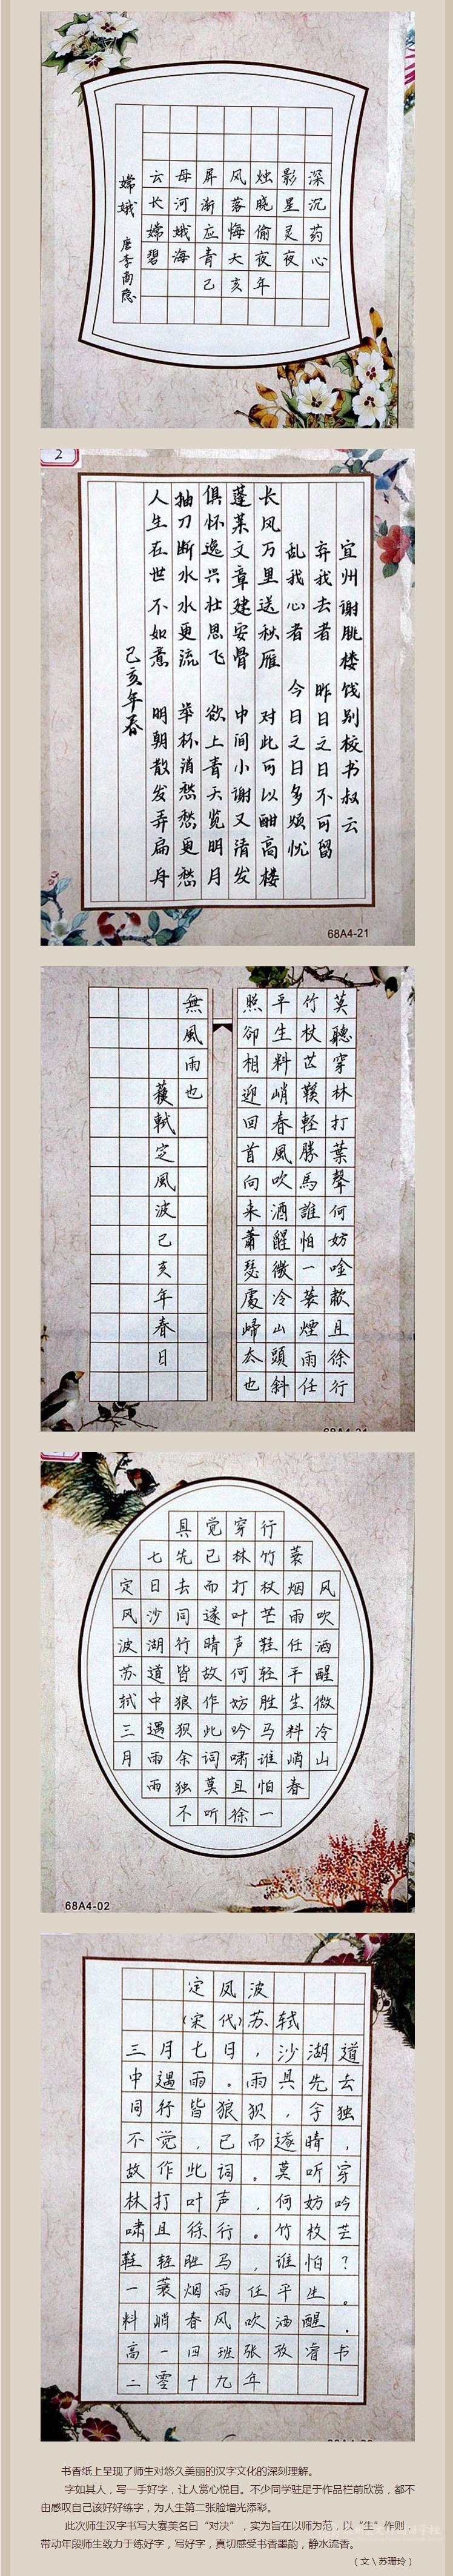 云母屏风烛影深
长河渐落晓星沉
嫦娥应悔偷灵药
碧海青天夜夜心
己亥年
嫦娥 唐李商隐
2
宣州谢朓楼饯别校书叔云
弃我去者 昨日之日不可留
乱我心者 今日之日多烦忧
长风万里送秋雁 对此可以酣高楼
蓬莱文章建安骨 中间小谢又清发
俱怀逸兴壮思飞 欲上青天览明月
抽刀断水水更流 举杯消愁愁更愁
人生在世不如意 明朝散发弄扁舟
己亥年春
68A4-21
莫聽穿林打葉聲何妨唫歗且徐行
竹杖芒鞵輕勝馬誰怕一蓑煙雨任
平生料峭春風吹酒醒微冷山頭斜
照卻相迎回首向来蕭瑟處歸去也
無風雨也
蘇軾定風波己亥年春日
风吹酒醒微冷山
蓑烟雨任平生料峭春
行竹杖芒鞋轻胜马谁怕一
穿林打叶声何妨吟啸且徐
觉已而遂晴故作此词莫听
具先去同行皆狼狈余独不
七日沙湖道中遇雨雨
定风波苏轼三月
68A4-02
定风波
（宋代）苏轼
三月七日，沙湖道
中遇雨。雨具先去
同行皆狼狈，余独
不觉，已而遂晴，
故作此词。莫听穿
林打叶声，何妨吟
啸且徐行。竹杖芒
鞋轻胜马，谁怕？
一蓑烟雨任平生。
料峭春风吹酒醒。
高一四班张孜睿书
二零十九年
书香纸上呈现了师生对悠久美丽的汉字文化的深刻理解。
字如其人，写一手好字，让人赏心悦目。不少同学驻足于作品栏前欣赏，都不
由感叹自己该好好练字，为人生第二张脸增光添彩。
此次师生汉字书写大赛美名曰“对决”，实为旨在以师为范，以“生”作则，
带动年段师生致力于练好字，写好字，真切感受书香墨韵，静水流香。
（文\苏珊玲）